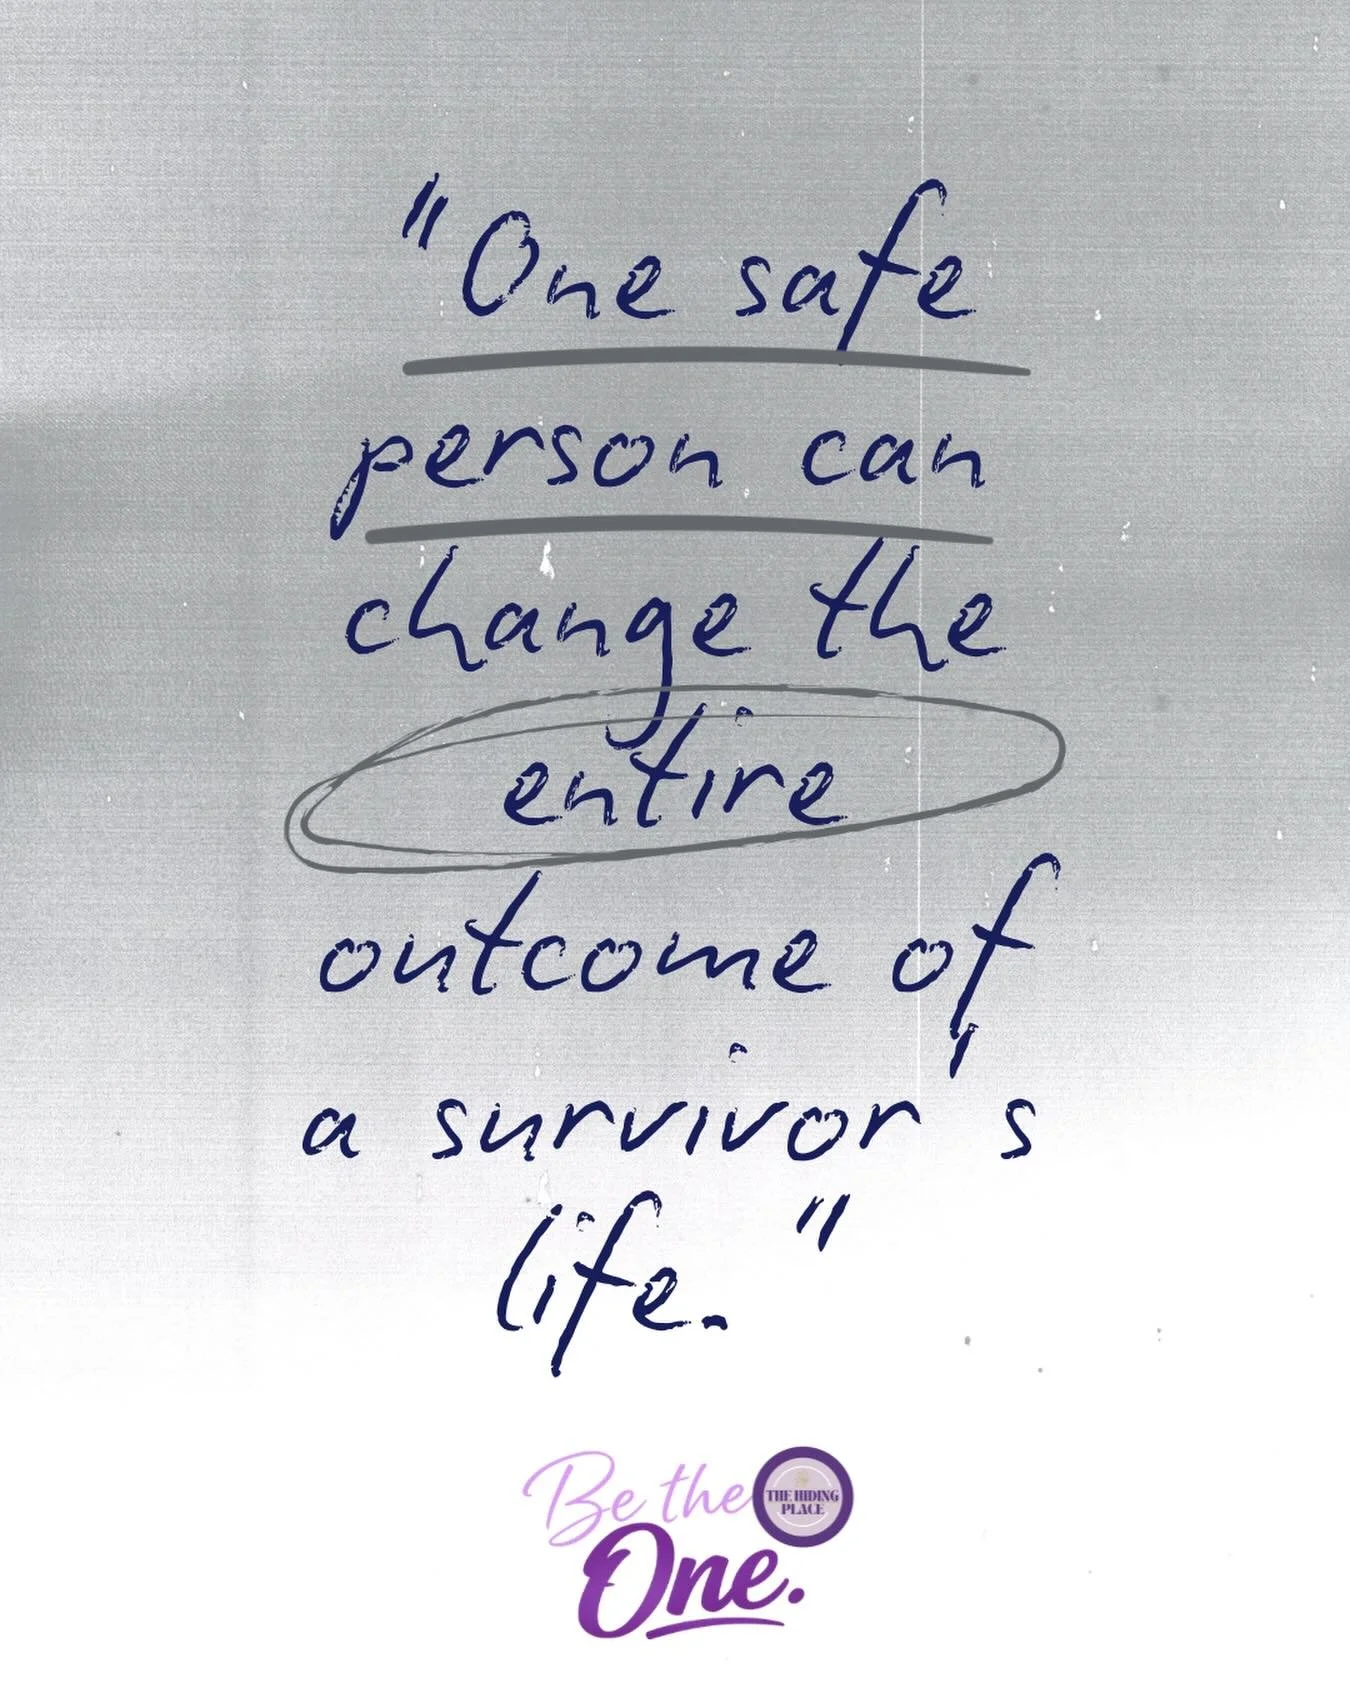 "One safe
person can
change the
entire
outcome of
a survivor's
life."
Be the
THE HIDING
PLACE
One.